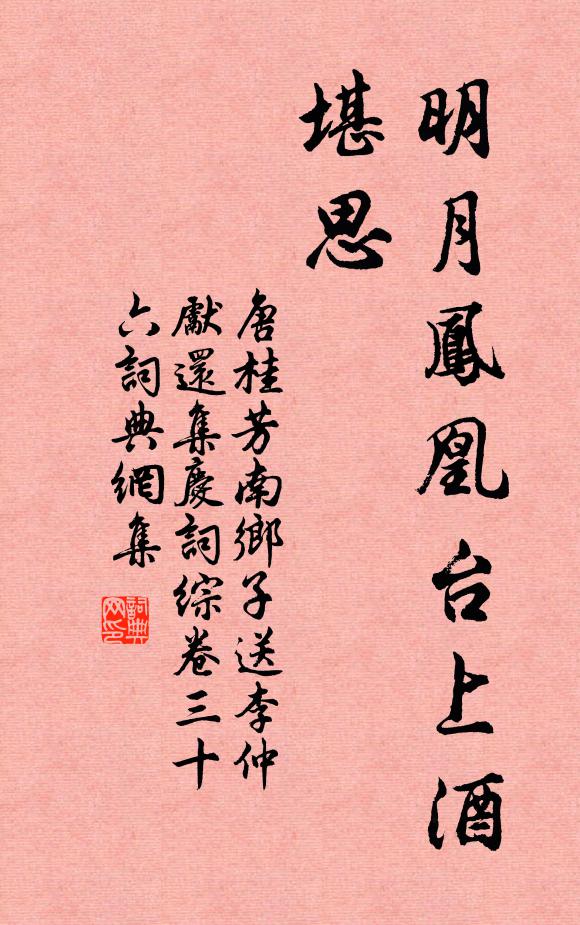 明月鳳凰台上酒
堪思
唐桂芳南鄉子送李仲
獻還集慶詞綜卷三十
六詞典網集
詞典网印